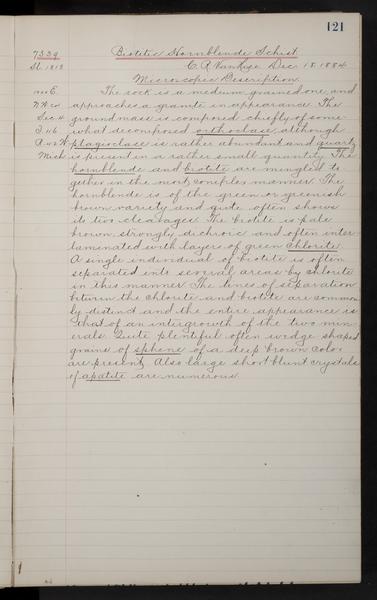 121
7339 Biotitic Hornblende Schist.
Sl. 1813 C. R. Van Hise Dec. 18. 1884
Microscopic Description.
The rock is a medium grained one, and
N.W. cor approaches a granite in appearance. The
Sec. 4 groundmass is composed chiefly of some-
T. 46 what decomposed orthoclase, although
plagioclase is rather abundant and quartz
Mich is present in a rather small quantity. The
hornblende and biotite are mingled to
gether in the most complex manner. The
hornblende is of the green or greenish
brown variety and quite often shows
its two cleavages. The biotite is pale
brown, strongly dichroic and often inter-
laminated with layers of green chlorite.
A single individual of biotite is often
separated into several areas by chlorite
in this manner. The lines of separation
between the chlorite and biotite are common
ly distinct and the entire appearance is
that of an intergrowth of the two min-
erals. Quite plentiful often wedge shaped
grains of sphene of a deep brown color
are present. Also large short blunt crystals
of apatite are numerous.